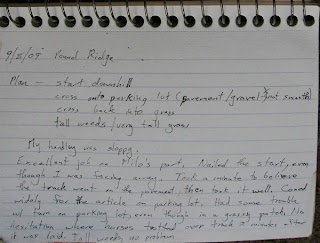 9/5/09 Pound Ridge
Plan - start downhill
cross onto parking lot (pavement/gravel joint smooth)
cross back into grass
tall weeds/very tall grass
My handling was sloppy.
Excellent job on Milo's part. Nailed the start, even
though I was facing away. Took a minute to believe
the track went on the pavement then took it well. Cased
widely for the article on parking lot. Had some trouble
w/ turn on parking lot, even though in a grassy patch. No
hesitation where horses trotted over track 2 minutes after
it was laid. Tall weeds, no problem.